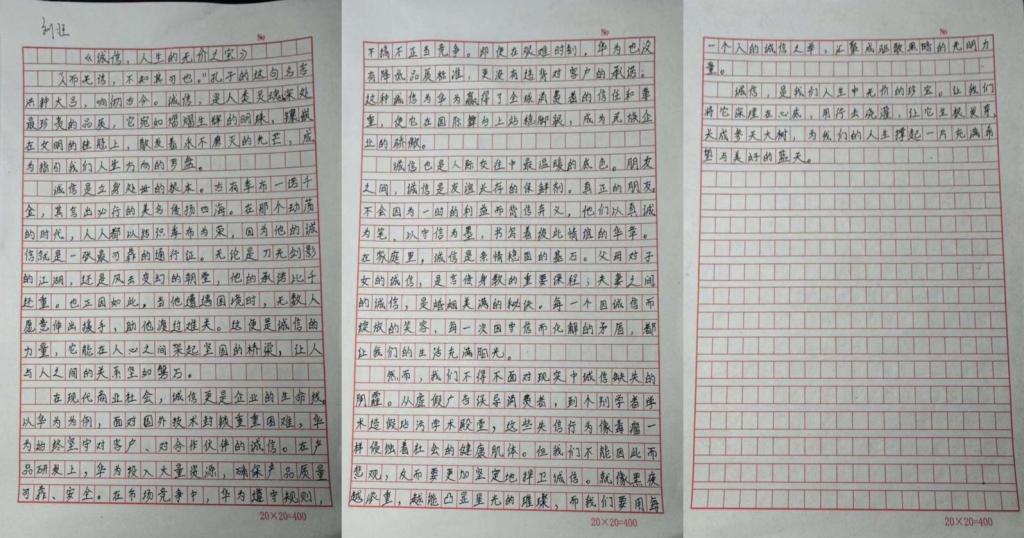 刘旺
No
《诚信，人生的无价之宝》
“人而无信，不知其可也。”孔子的这句名言
洪钟大吕，响彻古今。诚信，是人类灵魂深处
最珍贵的品质，它宛如熠熠生辉的明珠，镶嵌
在文明的桂冠上，散发着永不磨灭的光芒，成
为指引我们人生方向的罗盘。
诚信是立身处世的根本。古有季布一诺千
金，其言出必行的美名传扬四海。在那个动荡
的时代，人人都以结识季布为荣，因为他的诚
信就是一张最可靠的通行证。无论是刀光剑影
的江湖，还是风云变幻的朝堂，他的承诺比千
金重。也正因如此，当他遭遇困境时，无数人
愿意伸出援手，助他渡过难关。这便是诚信的
力量，它能在人心之间架起坚固的桥梁，让人
与人之间的关系坚如磐石。
在现代商业社会，诚信更是企业的生命线。
以华为为例，面对国外技术封锁重重困难，华
为始终坚守对客户、对合作伙伴的诚信。在产
品研发上，华为投入大量资源，确保产品质量
可靠、安全。在市场竞争中，华为遵守规则，
20×20=400
No
不搞不正当竞争。即使在艰难时刻，华为也没
有降低品质标准，更没有违背对客户的承诺。
这种诚信为华为赢得了全球消费者的信任和尊
重，使它在国际舞台上站稳脚跟，成为民族企
业的骄傲。
诚信也是人际交往中最温暖的底色。朋友
之间，诚信是友谊长存的保鲜剂。真正的朋友
不会因为一时的利益而背信弃义，他们以真诚
为笔，以守信为墨，书写着彼此情谊的华章。
在家庭里，诚信是亲情稳固的基石。父母对子
女的诚信，是言传身教的重要课程；夫妻之间
的诚信，是婚姻美满的秘诀。每一个因诚信而
绽放的笑容，每一次因守信而化解的矛盾，都
让我们的生活充满阳光。
然而，我们不得不面对现实中诚信缺失的
阴霾。从虚假广告误导消费者，到个别学者学
术造假玷污学术殿堂，这些失信行为像毒瘤一
样侵蚀着社会的健康肌体。但我们不能因此而
悲观，反而要更加坚定地捍卫诚信。就像黑夜
越浓重，越能凸显星光的璀璨，而我们要用每
20×20=400
No
一个人的诚信之举，汇聚成驱散黑暗的光明力
量。
诚信，是我们人生中无价的珍宝。让我们
将它深埋在心底，用行去浇灌，让它生根发芽，
长成参天大树，为我们的人生撑起一片充满希
望与美好的蓝天。
20×20=400